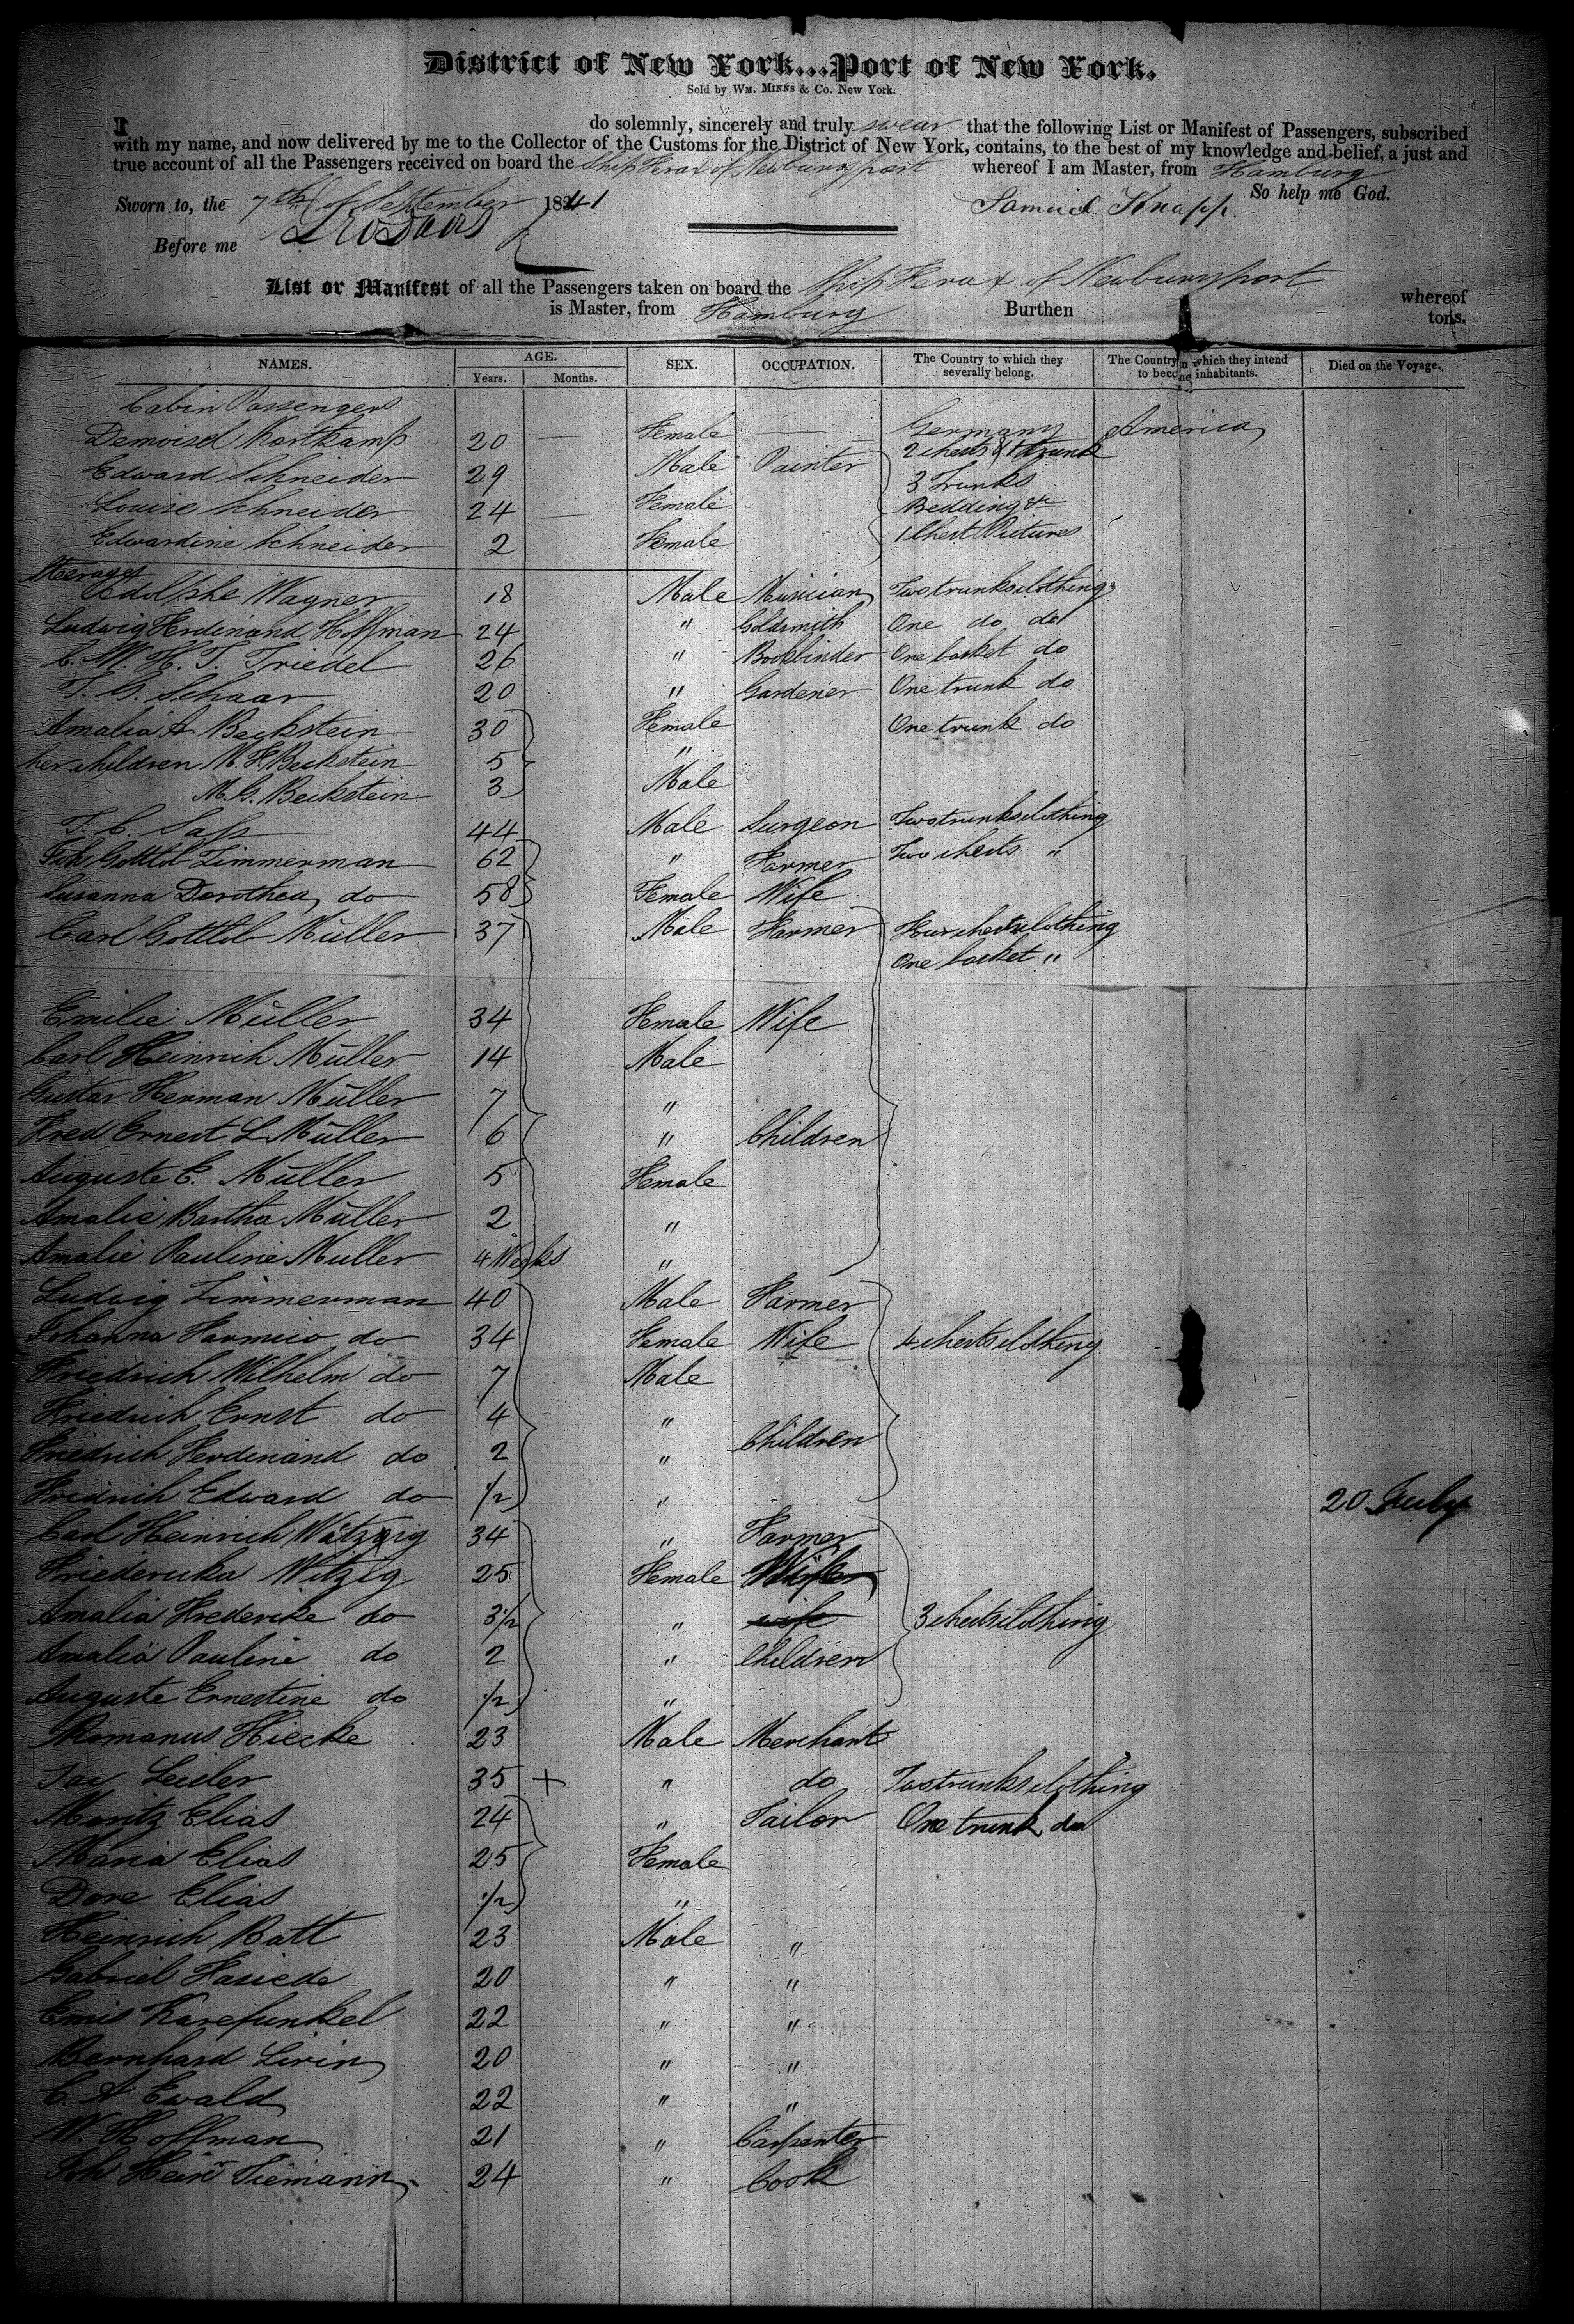 District of New York...Port of New York.
Sold by WM. MINNS & Co. New York.
I do solemnly, sincerely and truly swear that the following List or Manifest of Passengers, subscribed
with my name, and now delivered by me to the Collector of the Customs for the District of New York, contains, to the best of my knowledge and belief, a just and
true account of all the Passengers received on board the Ship Herax of Newburyport whereof I am Master, from Hamburg
So help me God.
Sworn to, the 7th of September 1841 Samuel Knapp.
Before me
List or Manifest of all the Passengers taken on board the Ship Herax of Newburyport whereof
is Master, from Hamburg Burthen tons.
NAMES. AGE. Years. Months. SEX. OCCUPATION. The Country to which they severally belong. The Country in which they intend to become inhabitants. Died on the Voyage.
Cabin Passengers
Demoisel Kortkamp 20 — Female — Germany America
2 chests & 1 trunk
Edward Schneider 29 Male Painter 3 Trunks
Louise Schneider 24 — Female Bedding &c
Edwardine Schneider 2 Female 1 Chest Pictures
Steerage
Adolphe Wagner 18 Male Musician Two trunks clothing
Ludwig Ferdinand Hoffman 24 " Goldsmith One do do
C. W. H. T. Triedel 26 " Bookbinder One basket do
T. G. Schaar 20 " Gardener One trunk do
Amalia A Beckstein 30 Female One trunk do
her children M. F. Beckstein 5 "
M. G. Beckstein 3 Male
T. C. Sass 44 Male Surgeon Two trunks clothing
Joh Gottlob Zimmerman 62 " Farmer Two chests "
Susanna Dorothea do 58 Female Wife
Carl Gottlob Müller 37 Male Farmer Four chests clothing
One basket "
Emilie Müller 34 Female Wife
Carl Heinrich Müller 14 Male
Gustav Herman Müller 7 "
Fred Ernest L Müller 6 " Children
Auguste E. Müller 5 Female
Amalie Bartha Müller 2 "
Amalie Pauline Muller 4 Weeks "
Ludwig Zimmerman 40 Male Farmer
Johanna do 34 Female Wife 4 chests clothing
Friedrich Wilhelm do 7 Male
Friedrich Ernst do 4 "
Friedrich Ferdinand do 2 " Children
Fridrich Edward do 1/2 " 20 July
Carl Heinrich 34 " Farmer
Friedericka Witzig 25 Female
Amalia Frederike do 3 1/2 " wife 3 chests clothing
Amalia Pauline do 2 " Children
Auguste Ernestine do 1/2 "
Romanus Hiecke 23 Male Merchant
Leisler 35 + " do Two trunks clothing
Moritz Elias 24 " Tailor One trunk do
Maria Elias 25 Female
Dore Elias 1/2 "
Heinrich Batt 23 Male "
Gabriel 20 " "
Karefunkel 22 " "
Bernhard 20 " "
C. A Ewald 22 " "
W. Hoffman 21 " Carpenter
Joh Hein Tiemann 24 " Cook